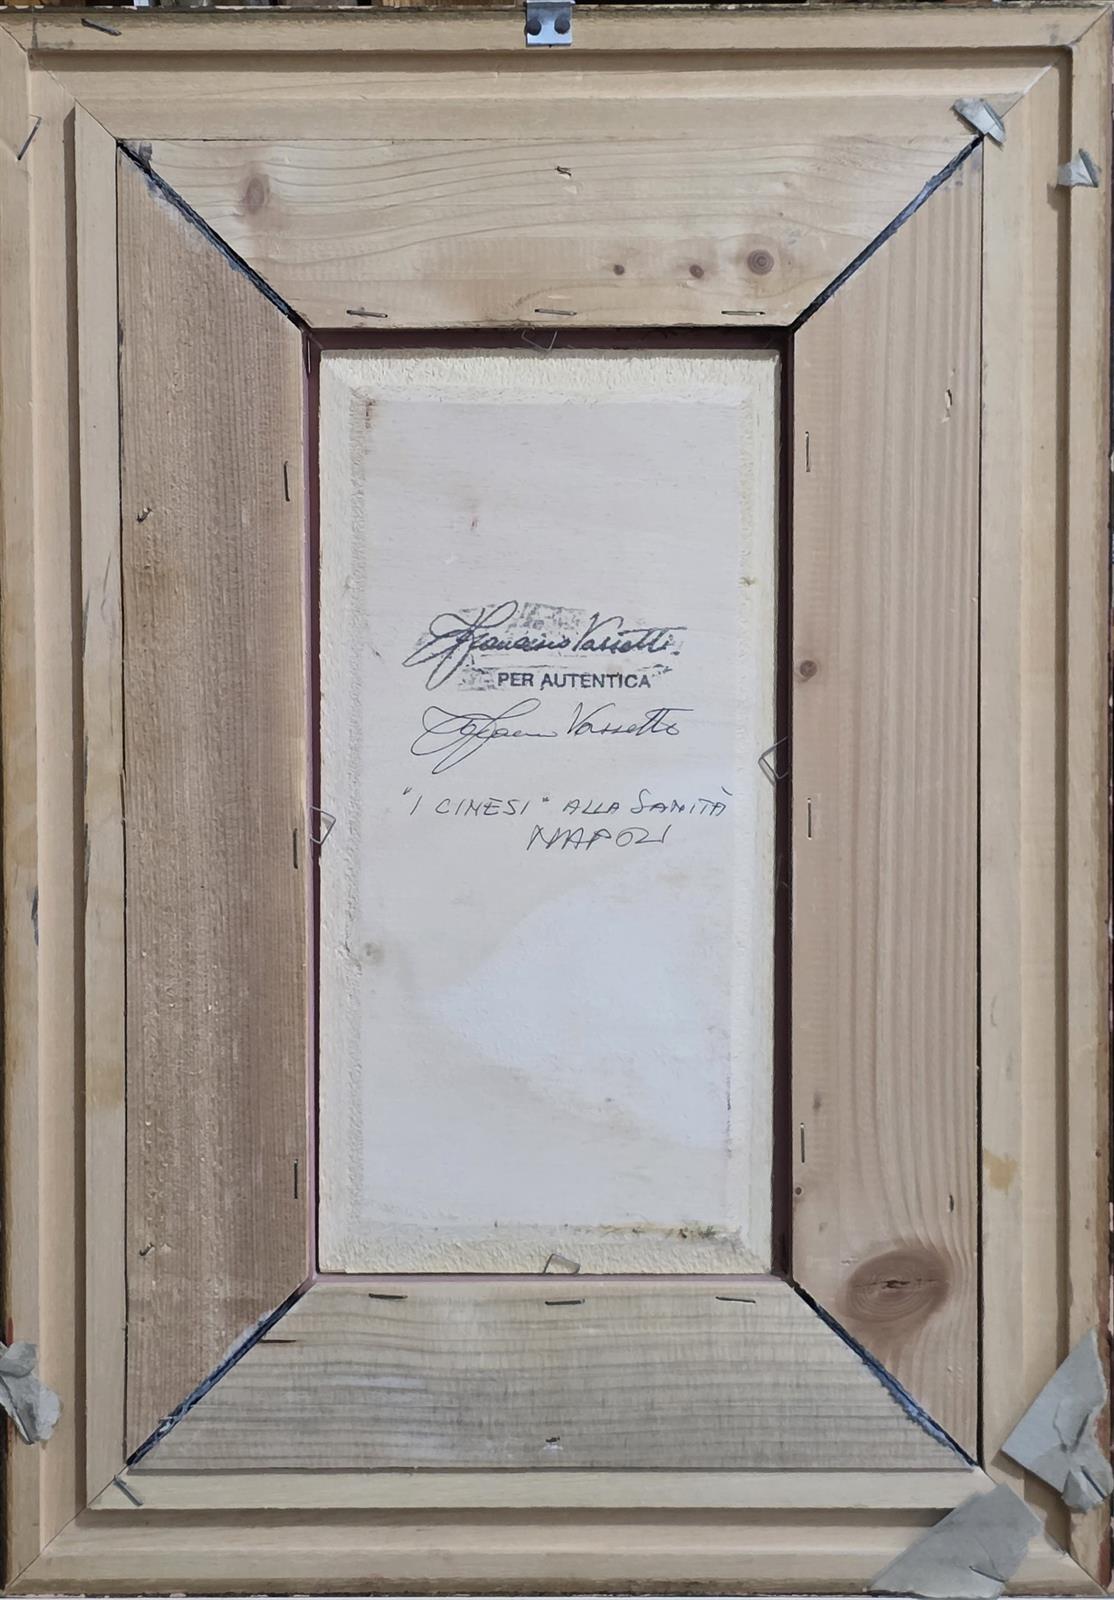 Francesco Vassetti
PER AUTENTICA
Vassetti
"I CINESI" ALLA SANITÀ
NAPOLI